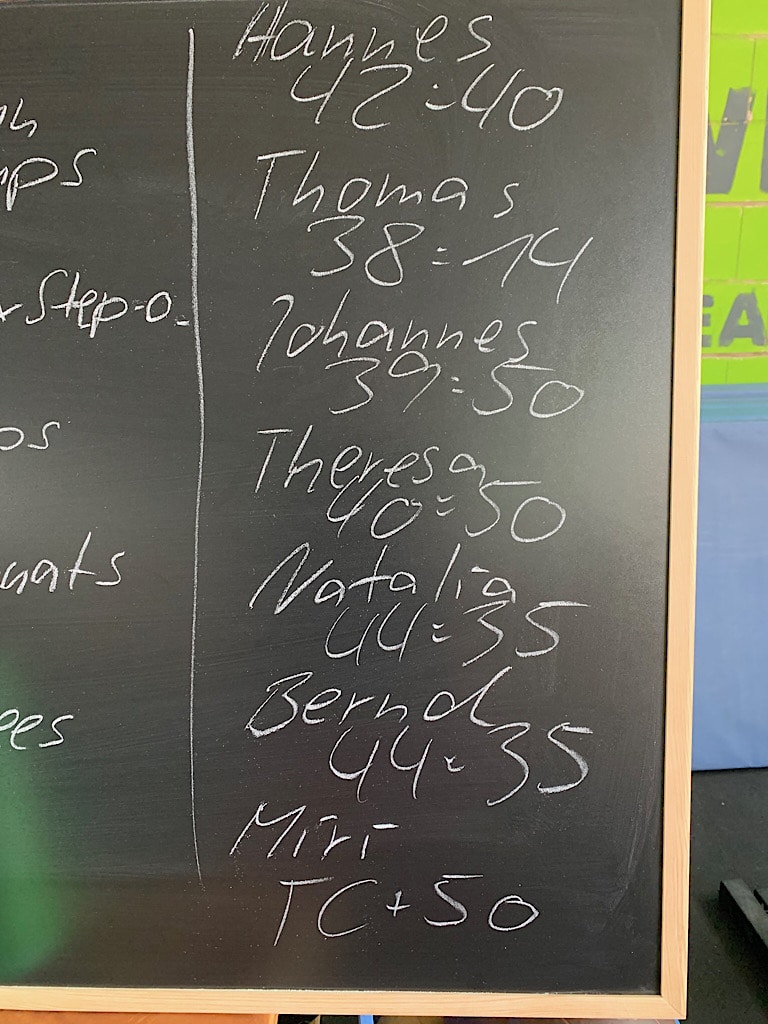 Hannes
42:40
Thomas
38:14
Johannes
39:50
Theresa
40:50
Natalia
44:35
Bernd
44:35
Miri
TC+50
Step-o